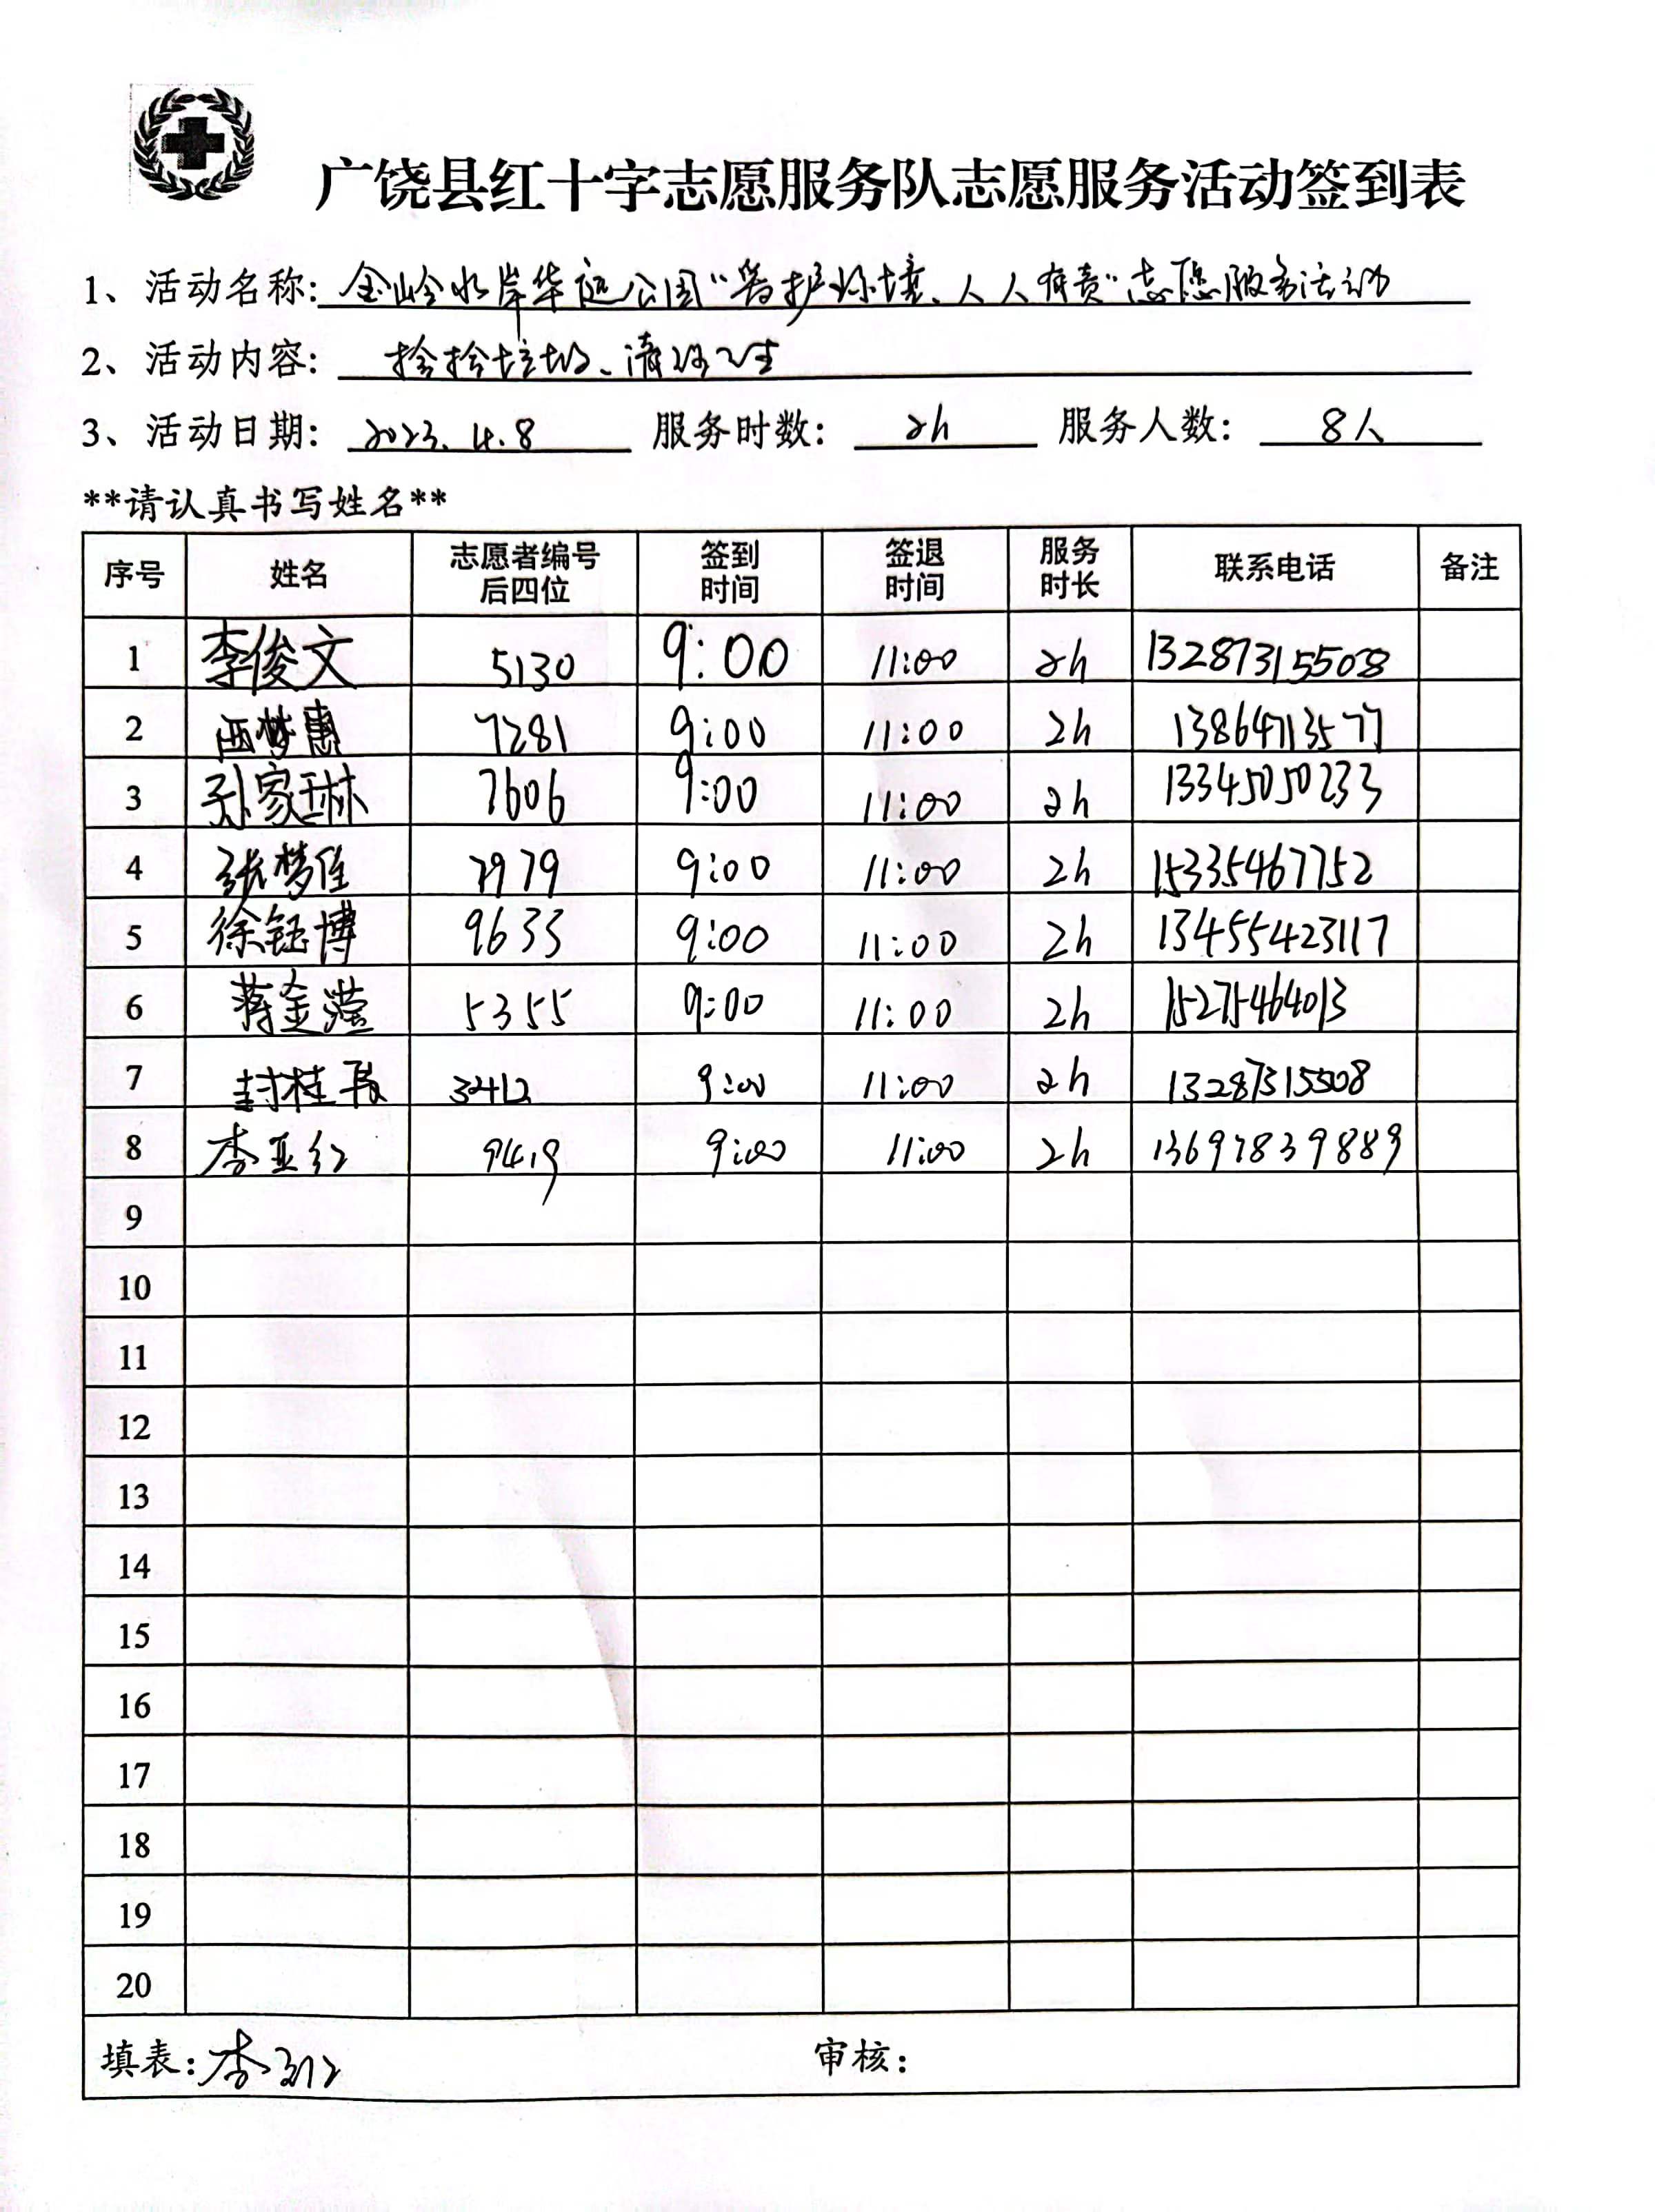 广饶县红十字志愿服务队志愿服务活动签到表
1、活动名称：金岭水岸华远公园“爱护环境、人人有责”志愿服务活动
2、活动内容：捡拾垃圾、清理卫生
3、活动日期：2023.4.8 服务时数：2h 服务人数：8人
**请认真书写姓名**
序号 姓名 志愿者编号后四位 签到时间 签退时间 服务时长 联系电话 备注
1 李俊文 5130 9:00 11:00 2h 13287315508
2 西梦惠 7281 9:00 11:00 2h 13864713577
3 孙家琳 7606 9:00 11:00 2h 13345050233
4 张梦佳 7979 9:00 11:00 2h 15335467752
5 徐钰博 9633 9:00 11:00 2h 13455423117
6 蒋金滢 5355 9:00 11:00 2h 15275464013
7 封桂 3412 9:00 11:00 2h 13287315508
8 李亚红 9419 9:00 11:00 2h 13697839889
9
10
11
12
13
14
15
16
17
18
19
20
填表：李亚红 审核：